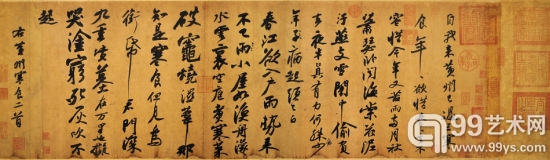 自我來黃州已過三寒
食年年欲惜春春去不
容惜今年又苦雨兩月秋
蕭瑟臥聞海棠花泥
汙燕支雪闇中偷負
去夜半真有力何殊少
年子病起頭已白
春江欲入戶雨勢來
不已雨小屋如漁舟濛濛
水雲裏空庖煮寒菜
破竈燒濕葦那
知是寒食但見烏
銜帋君門深
九重墳墓在萬里也擬
哭塗窮死灰吹不
起
右黃州寒食二首
99艺术网
99ys.com